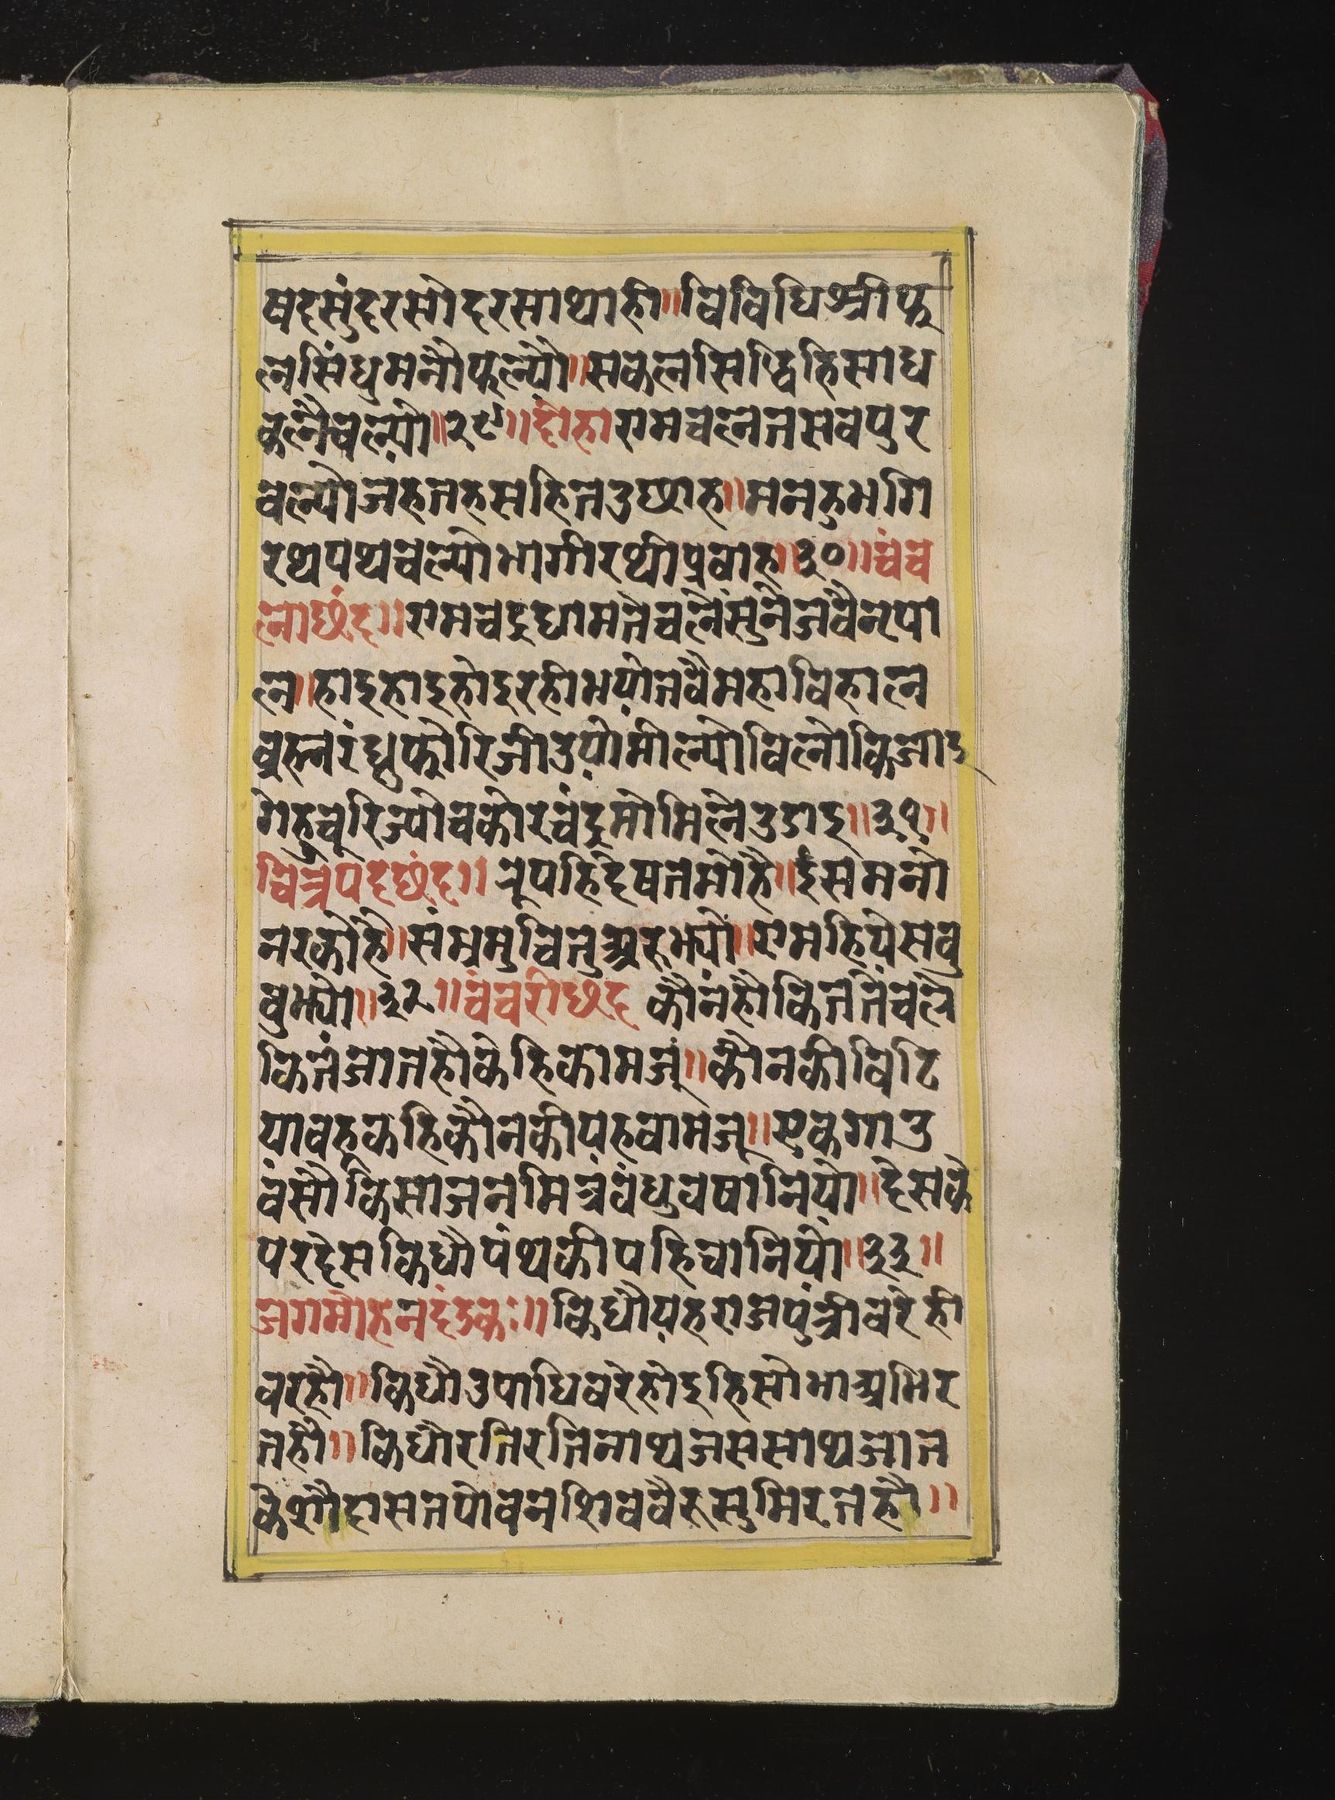 षदसुंदरसोदरसाथाही॥विविधिश्रीफ
लसिंधुमनौफल्यौ॥सकलसिद्धिहिसाध
कलैचल्यो॥२९॥दोहा रामचलनसवपुर
चल्योजहतहसहितउछाह॥मनहुभगि
रथपथचल्योभागीरथीप्रवाह॥३०॥चंच
लाछंद॥रामचंद्रधामतेचलेसुनेजवैनृपा
ल॥हाइहाइहोइरहीभयोतवैमहाविहाल
व्रह्मरंध्रफोरिजीउयोमील्योविलोकिजाइ
गेहचूरिज्योचकोरचंद्रमोमिलैउडाइ॥३१॥
चित्रपदछंद॥रूपहिदेषतमोहै॥इसमनौ
नरकोहै॥संभ्रमुचितुअरुझ्यौ॥रामहियेसवु
वुझ्यौ॥३२॥चंचरीछंद कौनहौकिततेचले
कितजातहौकेहिकामजू॥कौनकीविटि
यावहूकहिकौनकीयहवामजू॥एकगाउ
वंसौकिसाजनमित्रवंधुवषानियो॥देसके
परदेसकिधौपंथकीपहिचानियो॥३३॥
जगमोहनदंडकः॥किधौयहराजपुत्रीवरेही
वरहौ॥किधौउपाधिवरेहोइहिसोभाअभिर
तहौ॥किधौरतिरतिनाथजससाथजात
केशोदासतपोवनशिववैरुसुमिरतहौ॥